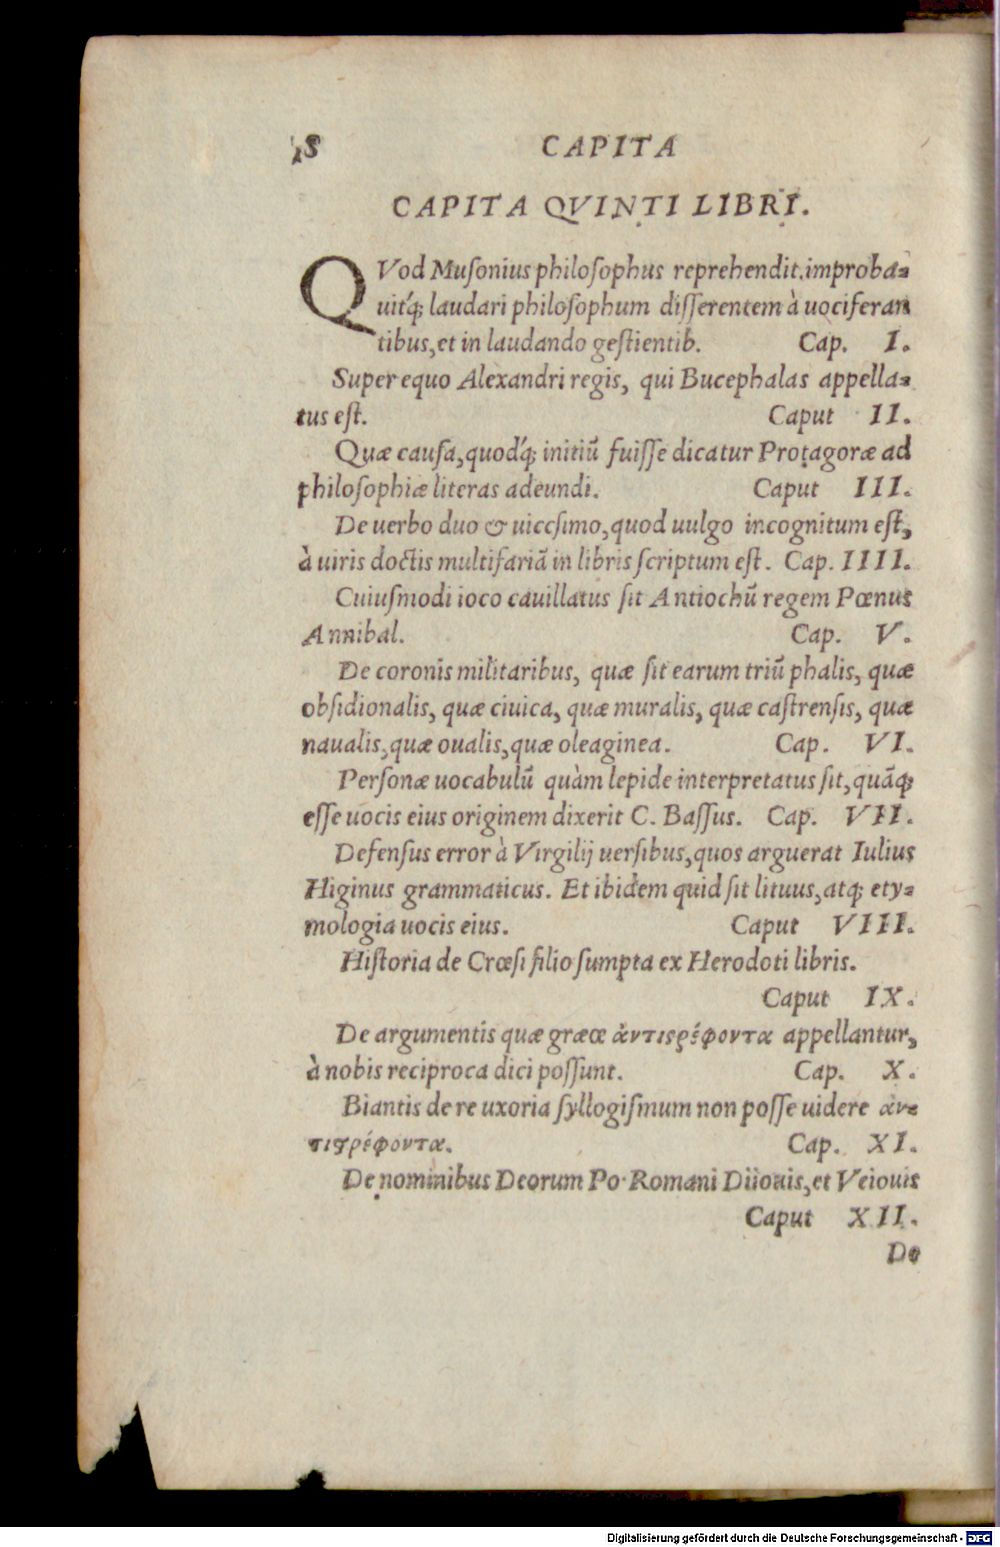 18 CAPITA
CAPITA QVINTI LIBRI.
QVod Muſonius philoſophus reprehendit, improba-
uitq́; laudari philoſophum diſſerentem à uociferan
tibus, et in laudando geſtientib. Cap. I.
Super equo Alexandri regis, qui Bucephalas appella-
tus eſt. Caput II.
Quæ cauſa, quodq́; initiũ fuiſſe dicatur Protagoræ ad
philoſophiæ literas adeundi. Caput III.
De uerbo duo & uiceſimo, quod uulgo incognitum eſt,
à uiris doctis multifariã in libris ſcriptum eſt. Cap. IIII.
Cuiuſmodi ioco cauillatus ſit Antiochũ regem Pœnus
Annibal. Cap. V.
De coronis militaribus, quæ ſit earum triũphalis, quæ
obſidionalis, quæ ciuica, quæ muralis, quæ caſtrenſis, quæ
naualis, quæ oualis, quæ oleaginea. Cap. VI.
Perſonæ uocabulũ quàm lepide interpretatus ſit, quãq;
eſſe uocis eius originem dixerit C. Baſſus. Cap. VII.
Defenſus error à Virgilij uerſibus, quos arguerat Iulius
Higinus grammaticus. Et ibidem quid ſit lituus, atq; ety-
mologia uocis eius. Caput VIII.
Hiſtoria de Crœſi filio ſumpta ex Herodoti libris.
Caput IX.
De argumentis quæ græce ἀντιϛρέφοντα appellantur,
à nobis reciproca dici poſſunt. Cap. X.
Biantis de re uxoria ſyllogiſmum non poſſe uidere ἀν-
τιϛρέφοντα. Cap. XI.
De nominibus Deorum Po. Romani Diiouis, et Veiouis
Caput XII.
De
Digitalisierung gefördert durch die Deutsche Forschungsgemeinschaft - DFG